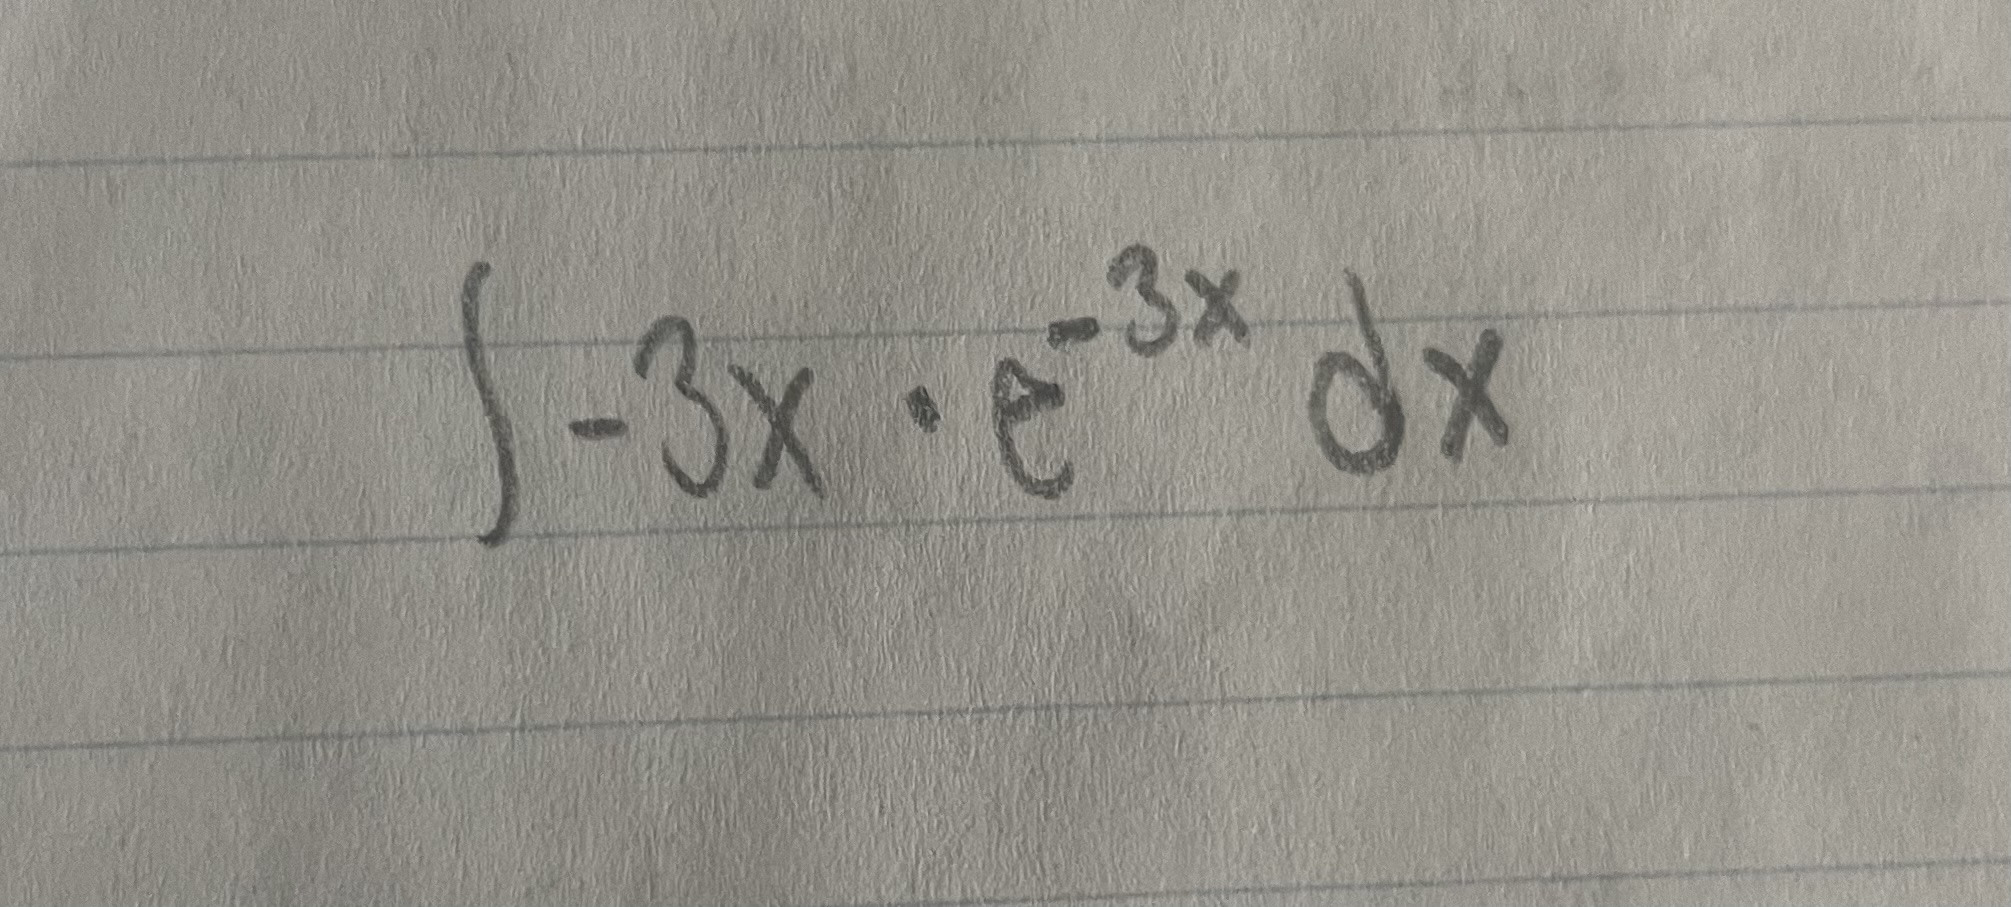 ∫-3x · e^{-3x} dx